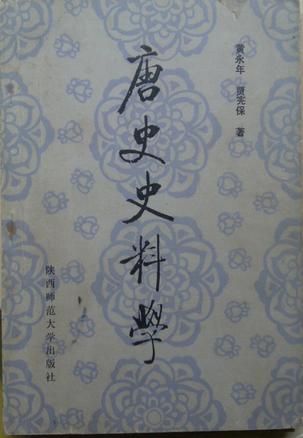 黄永年 贾宪保 著
唐史史料學
陕西师范大学出版社